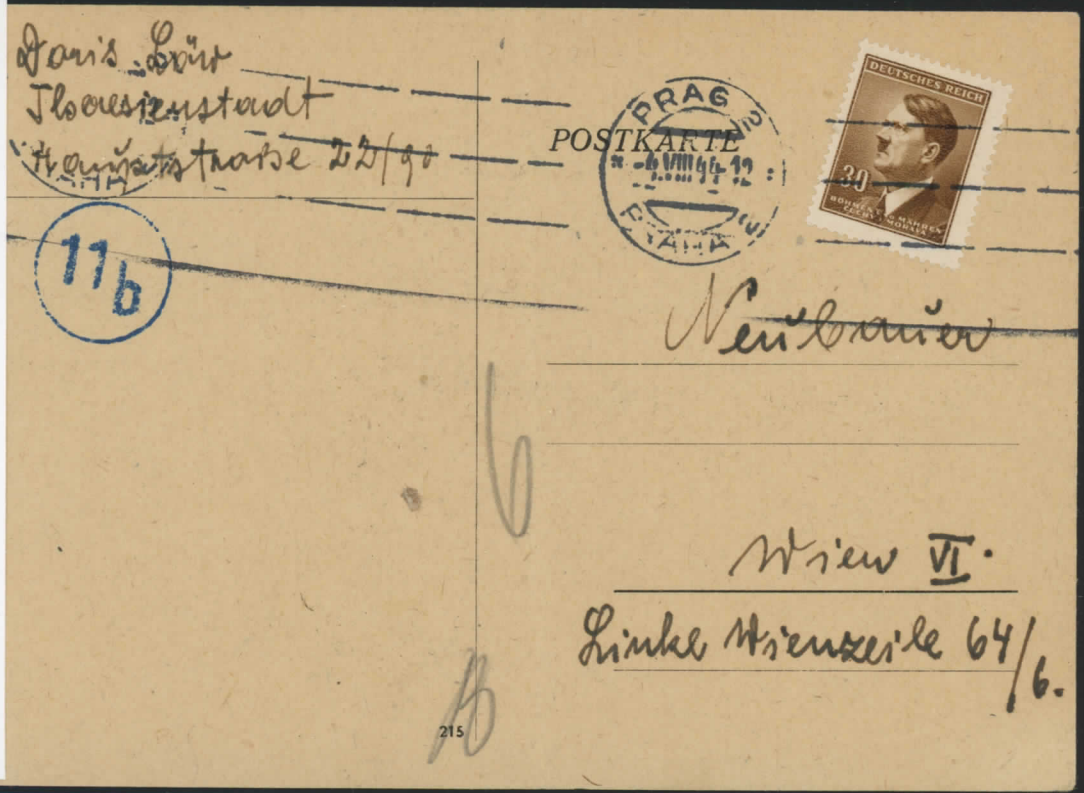 Doris Löw
Theresienstadt
Hauptstraße 22/90
11b
POSTKARTE
PRAG 2
PRAHA 2
DEUTSCHES REICH
30
BÖHMEN UND MÄHREN
ČECHY A MORAVA
Neubauer
6
Wien VI.
Linke Wienzeile 64/6.
215